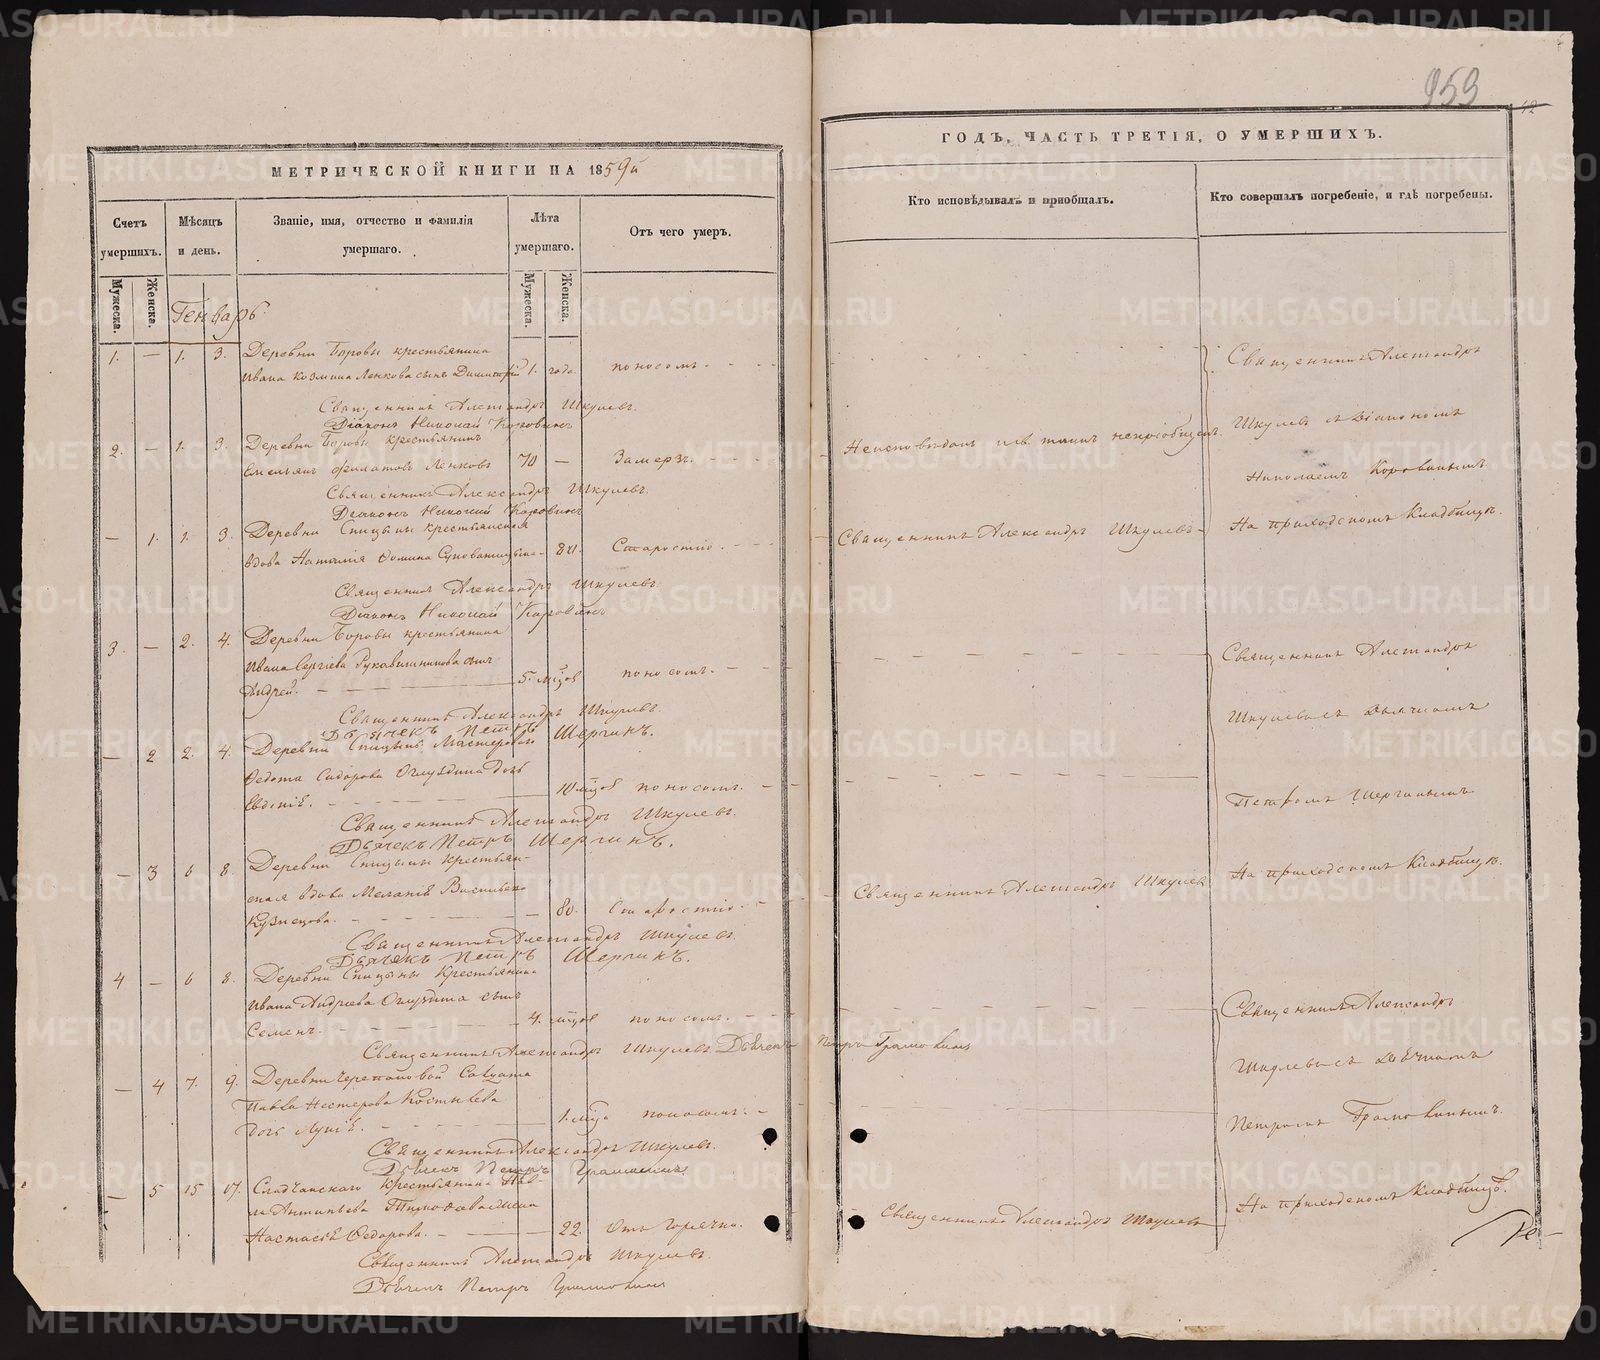 МЕТРИЧЕСКОЙ КНИГИ НА 1859й
Счетъ умершихъ.
Мѣсяцъ и день.
Званіе, имя, отчество и фамилія умершаго.
Лѣта умершаго.
Отъ чего умеръ.
Мужеска.
Женска.
Мужеска.
Женска.
Генварь
1. — 1. 3. Деревни Боровы крестьянина
Ивана Козмина Ленкова сынъ Димитрій 1. года поносомъ.
Священникъ Александръ Шкулевъ.
Діаконъ Николай Коровинъ
2. — 1. 3. Деревни Боровы крестьянинъ
Емельянъ Филатовъ Ленковъ 70 — Замерзъ.
Священникъ Александръ Шкулевъ.
Діаконъ Николай Коровинъ
— 1. 1. 3. Деревни Спицыны крестьянская
вдова Наталия Фомина 84. Старостію.
Священникъ Александръ Шкулевъ.
Діаконъ Николай Коровинъ
3. — 2. 4. Деревни Боровы крестьянина
Ивана Сергіева Рукавишникова сынъ
Андрей. 5. мцов поносомъ.
Священникъ Александръ Шкулевъ.
Дьячекъ Петръ Шергинъ.
— 2 2. 4. Деревни Спицыны Мастероваго
Федота Сидорова дочь
Евдокія. 10 мцов поносомъ.
Священникъ Александръ Шкулевъ.
Дьячекъ Петръ Шергинъ.
— 3 6 8. Деревни Спицыны крестьян-
ская вдова Меланія Васильева
Кузнецова. — 80. Старостію.
Священникъ Александръ Шкулевъ.
Дьячекъ Петръ Шергинъ.
4 — 6 8. Деревни Спицыны Крестьянина
Ивана Андреева сынъ
Семенъ. 4. мцов поносомъ.
Священникъ Александръ Шкулевъ Дьячекъ Петръ
— 4 7. 9. Деревни Черепановой Солдата
Павла Нестерова Костылева
дочь 1. мца поносомъ.
Священникъ Александръ Шкулевъ.
Дьячекъ Петръ
— 5 15 17. крестьянина Пав-
ла Антипьева жена
Настасія Федорова. — 22. Отъ горячки.
Священникъ Александръ Шкулевъ.
Дьячекъ Петръ
953
42
ГОДЪ, ЧАСТЬ ТРЕТІЯ, О УМЕРШИХЪ.
Кто исповѣдывалъ и приобщалъ.
Кто совершалъ погребеніе, и гдѣ погребены.
Священникъ Александръ
Шкулевъ съ Діакономъ
Неисповѣданъ и св. таинъ непріобщенъ.
Николаемъ Коровинымъ
Священникъ Александръ Шкулевъ
На приходскомъ Кладбищѣ.
Священникъ Александръ
Шкулевъ съ Дьячкомъ
Петромъ Шергинымъ
Священникъ Александръ Шкулевъ
На приходскомъ Кладбищѣ.
Священникъ Александръ
Шкулевъ съ Дьячкомъ
Петромъ
Священникъ Александръ Шкулевъ
На приходскомъ Кладбищѣ.
METRIKI.GASO-URAL.RU